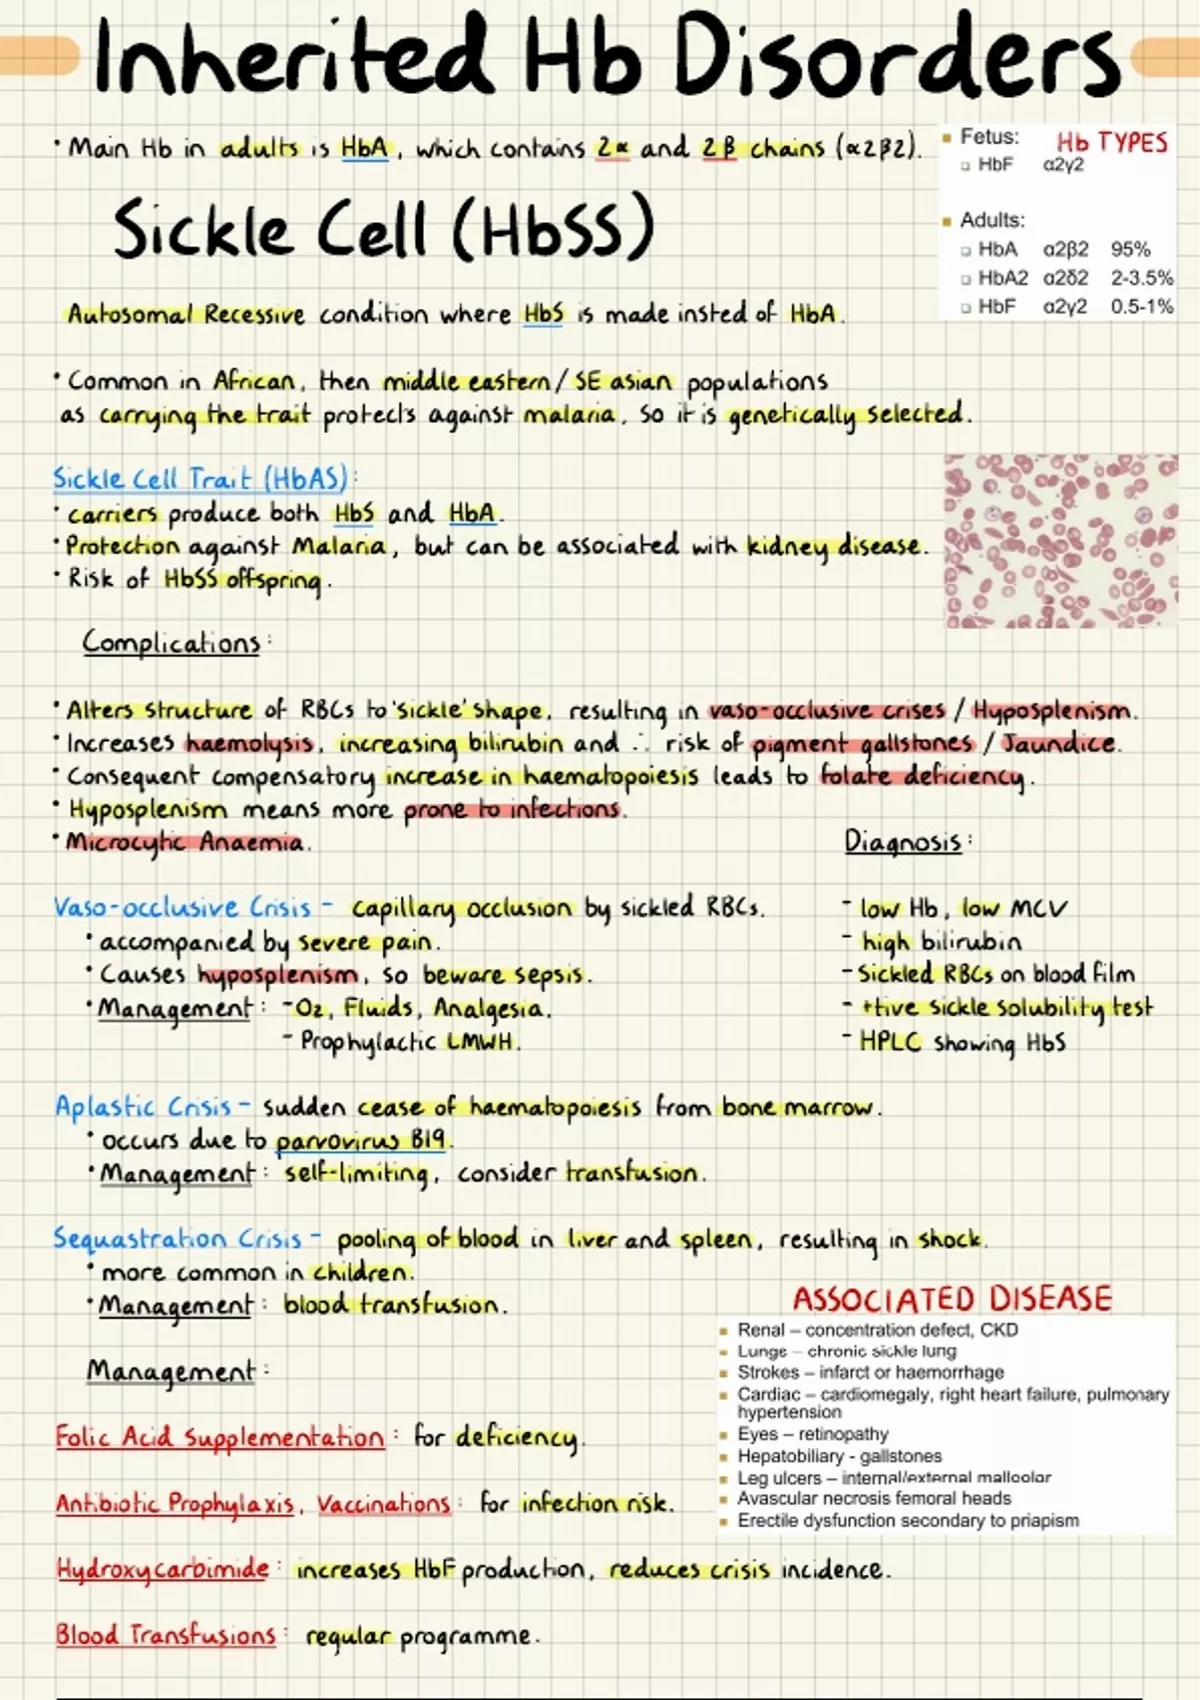 Inherited Hb Disorders
• Main Hb in adults is HbA, which contains 2α and 2β chains (α2β2).
Hb TYPES
▪ Fetus:
▫ HbF α2γ2
▪ Adults:
▫ HbA α2β2 95%
▫ HbA2 α2δ2 2-3.5%
▫ HbF α2γ2 0.5-1%
Sickle Cell (HbSS)
Autosomal Recessive condition where HbS is made insted of HbA.
• Common in African, then middle eastern / SE asian populations
as carrying the trait protects against malaria, so it is genetically selected.
Sickle Cell Trait (HbAS):
• carriers produce both HbS and HbA.
• Protection against Malaria, but can be associated with kidney disease.
• Risk of HbSS offspring.
Complications:
• Alters structure of RBCs to 'sickle' shape, resulting in vaso-occlusive crises / Hyposplenism.
• Increases haemolysis, increasing bilirubin and ∴ risk of pigment gallstones / Jaundice.
• Consequent compensatory increase in haematopoiesis leads to folate deficiency.
• Hyposplenism means more prone to infections.
• Microcytic Anaemia.
Vaso-occlusive Crisis - capillary occlusion by sickled RBCs.
• accompanied by severe pain.
• Causes hyposplenism, so beware sepsis.
• Management: - O2, Fluids, Analgesia.
- Prophylactic LMWH.
Diagnosis:
- low Hb, low MCV
- high bilirubin
- Sickled RBCs on blood film
- +tive sickle solubility test
- HPLC showing HbS
Aplastic Crisis - sudden cease of haematopoiesis from bone marrow.
• occurs due to parvovirus B19.
• Management: self-limiting, consider transfusion.
Sequastration Crisis - pooling of blood in liver and spleen, resulting in shock.
• more common in children.
• Management: blood transfusion.
ASSOCIATED DISEASE
▪ Renal – concentration defect, CKD
▪ Lungs – chronic sickle lung
▪ Strokes – infarct or haemorrhage
▪ Cardiac – cardiomegaly, right heart failure, pulmonary
hypertension
▪ Eyes – retinopathy
▪ Hepatobiliary - gallstones
▪ Leg ulcers – internal/external malleolar
▪ Avascular necrosis femoral heads
▪ Erectile dysfunction secondary to priapism
Management:
Folic Acid Supplementation: for deficiency.
Antibiotic Prophylaxis, Vaccinations: for infection risk.
Hydroxycarbimide: increases HbF production, reduces crisis incidence.
Blood Transfusions: regular programme.